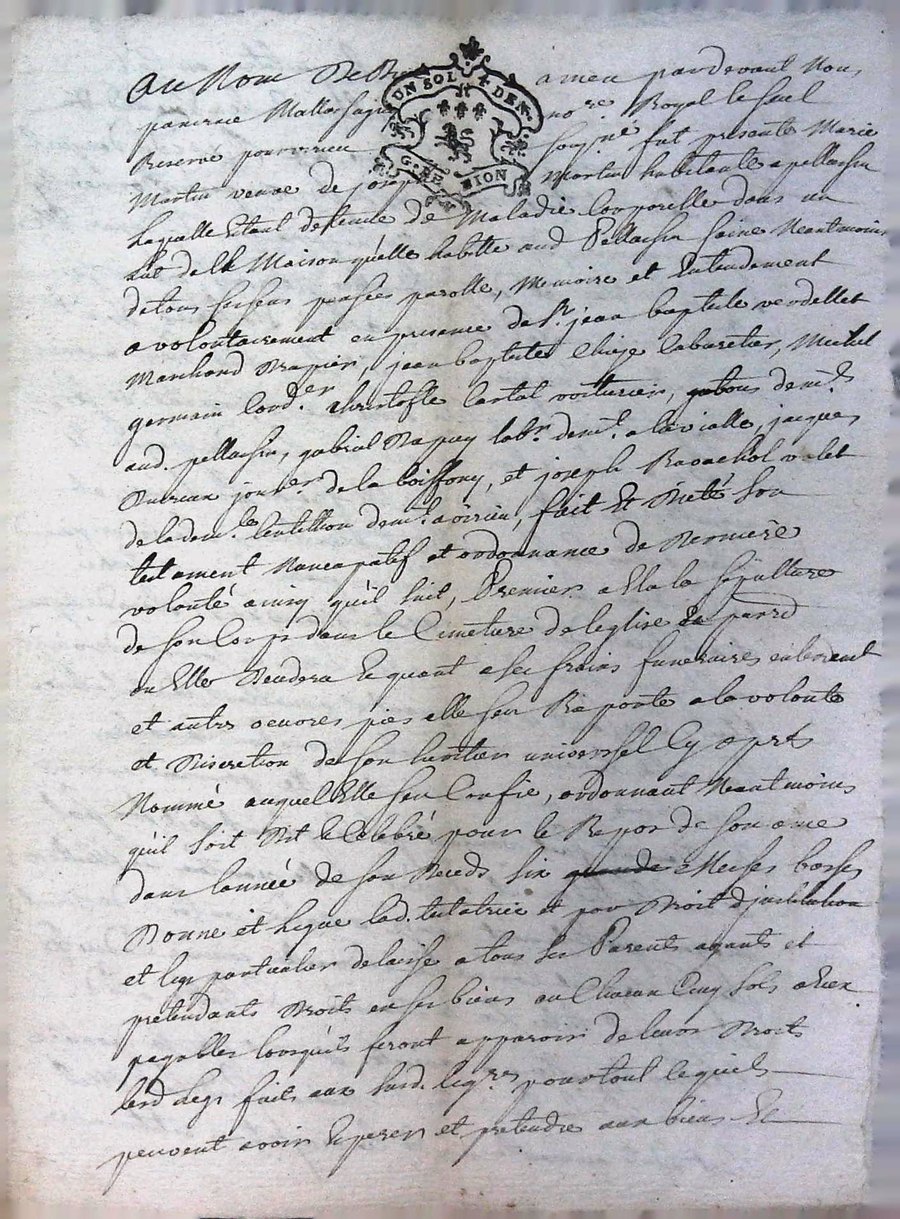 UN SOL 4 DEN.
GENE ION
Au Nom De D amen pardevant Nous
pancrace Mallassagn no.re Royal le seul
Reservé pourvirieu soigné fut presente Marie
Martin veuve de joseph martin habitante a pellassin
laquelle Etant detenüe de Maladie Corporelle dans un
lit de la Maison qu'elle habitte aud Pellassin saine Neantmoins
de tous ses sens pensées parolle, memoire et Entendement
a volontairement en presence de Sr. jean baptiste verdellet
Marchand Drapier, jean baptiste Cabaretier, Michel
germain Cord.er Christofle Cartal voiturier, tous dem.t
aud. pellassin, gabriel Dupuy lab.r dem.t a la vialle, jacques
jour.er de la boiffony, et joseph Ravachol valet
de la dem.lle Centillon dem.t a virieu, fait Et Dicté son
testament Nuncupatif et ordonnance de Derniere
volonté ainsy qu'il suit, Premier a Elû la sepulture
de son Corps dans le Cimetiere de l'eglise parr.d
ou Elle Deudera Et quant a ses frais funeraires enterrement
et autres oeuvres pies elle sen Raporte a la volonté
et Discretion de son heritier universel Cy aprés
Nommé auquel Elle sen Confie, ordonnant Neantmoins
qu'il soit Dit et Celebré pour le Repos de son ame
dans lannée de son Decéds six Messes basses
Donne et Legue lad. testatrice et par Droit d'institution
et legs particulier delaisse a tous ses Parents ayants et
pretendants Droits en ses biens au Chacun Cinq sols
payables lorsqu'ils feront apparoir de leurs Droits
lesd legs faits aux susd. leg.res pour tout ce quils
peuvent avoir Esperer et pretendre aux biens Et